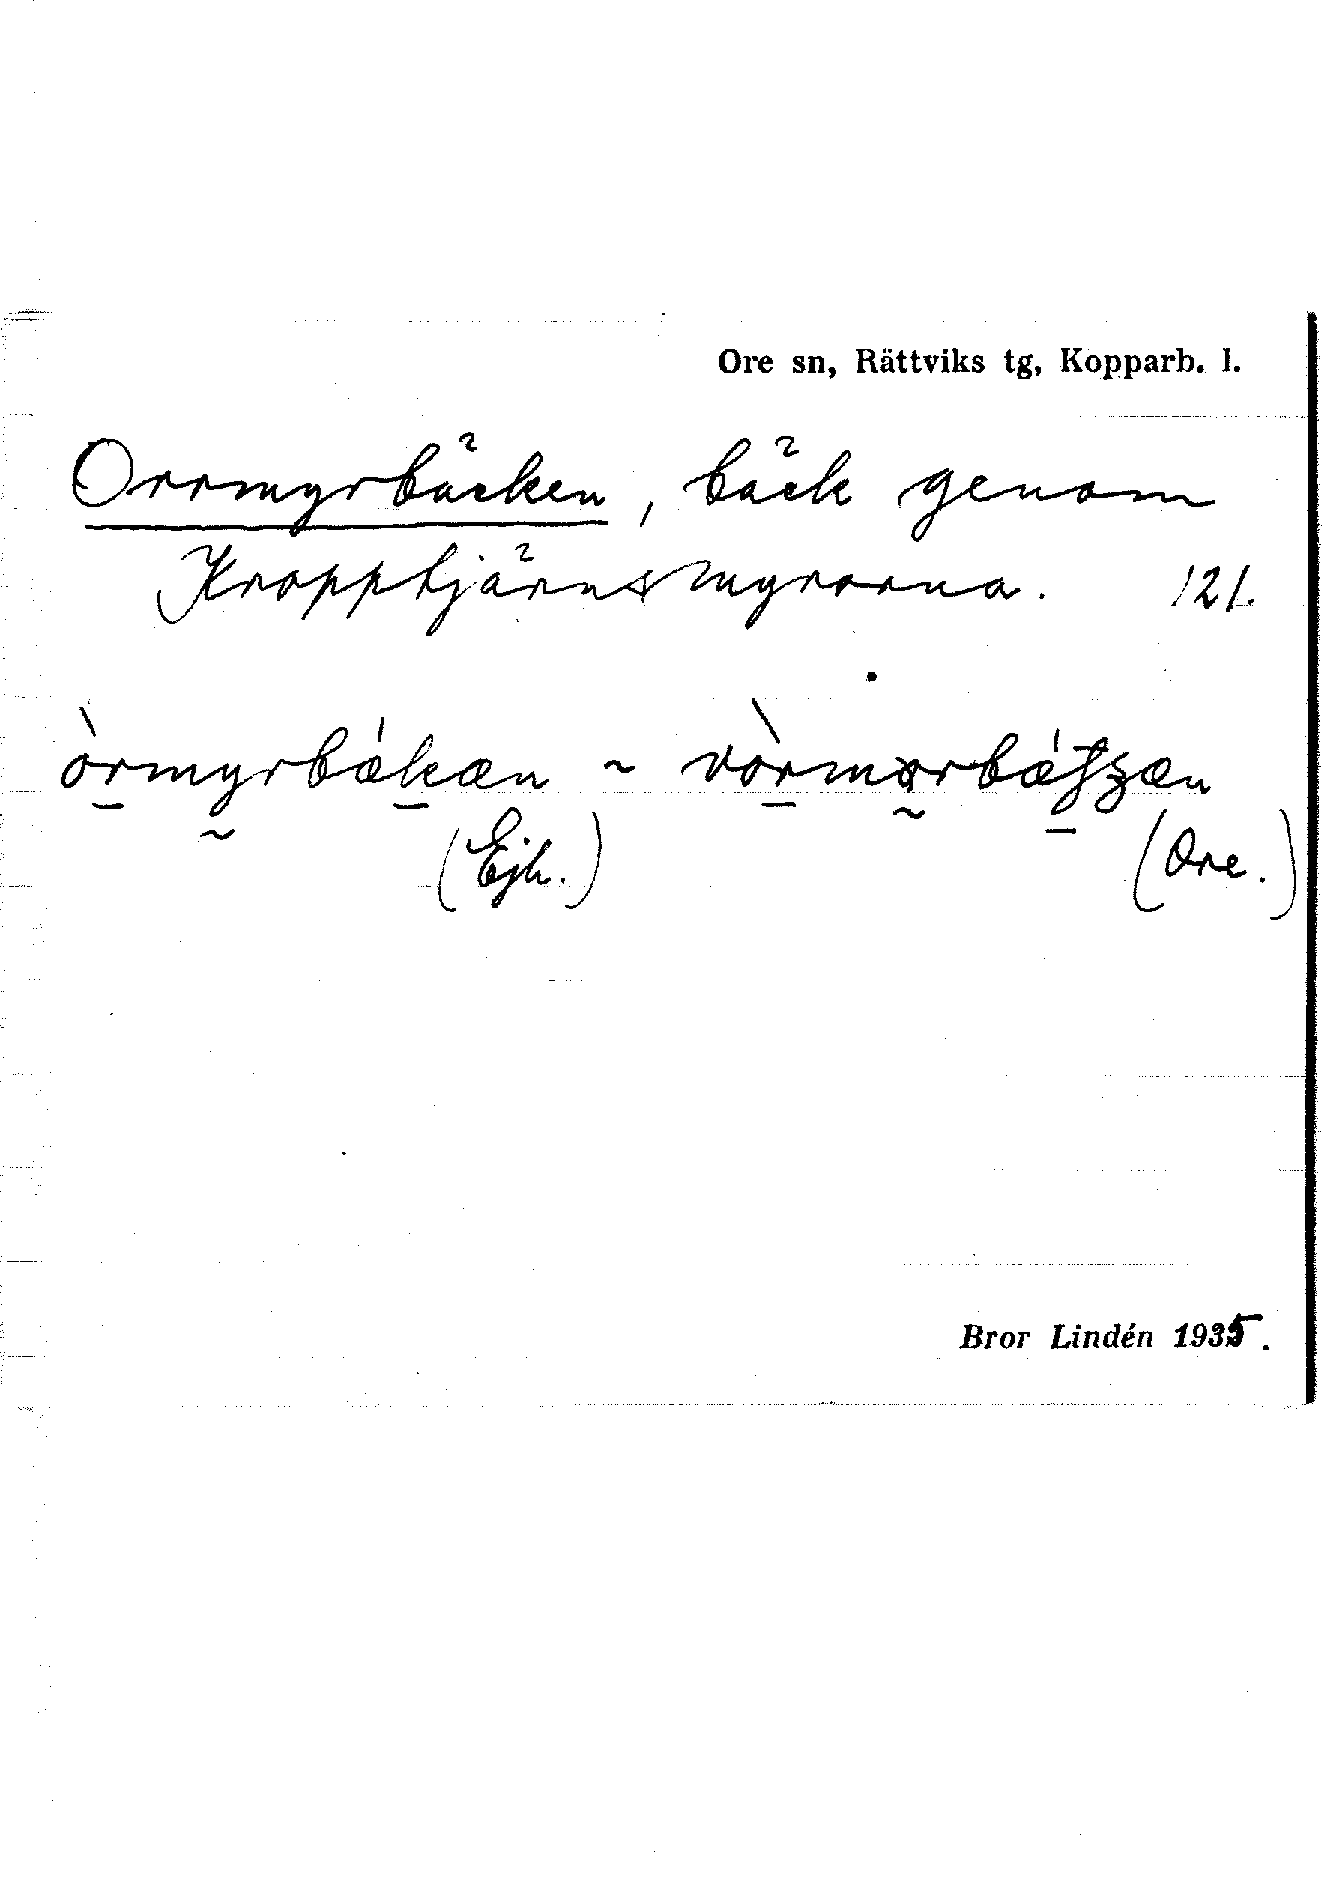 Ore sn, Rättviks tg, Kopparb. l.
Orrmyrbäcken, bäck genom
Kropptjärnsmyrorna. 121.
òrmyrbækæn ~ vòrm
(Ejh.) (Ore.)
Bror Lindén 1935.